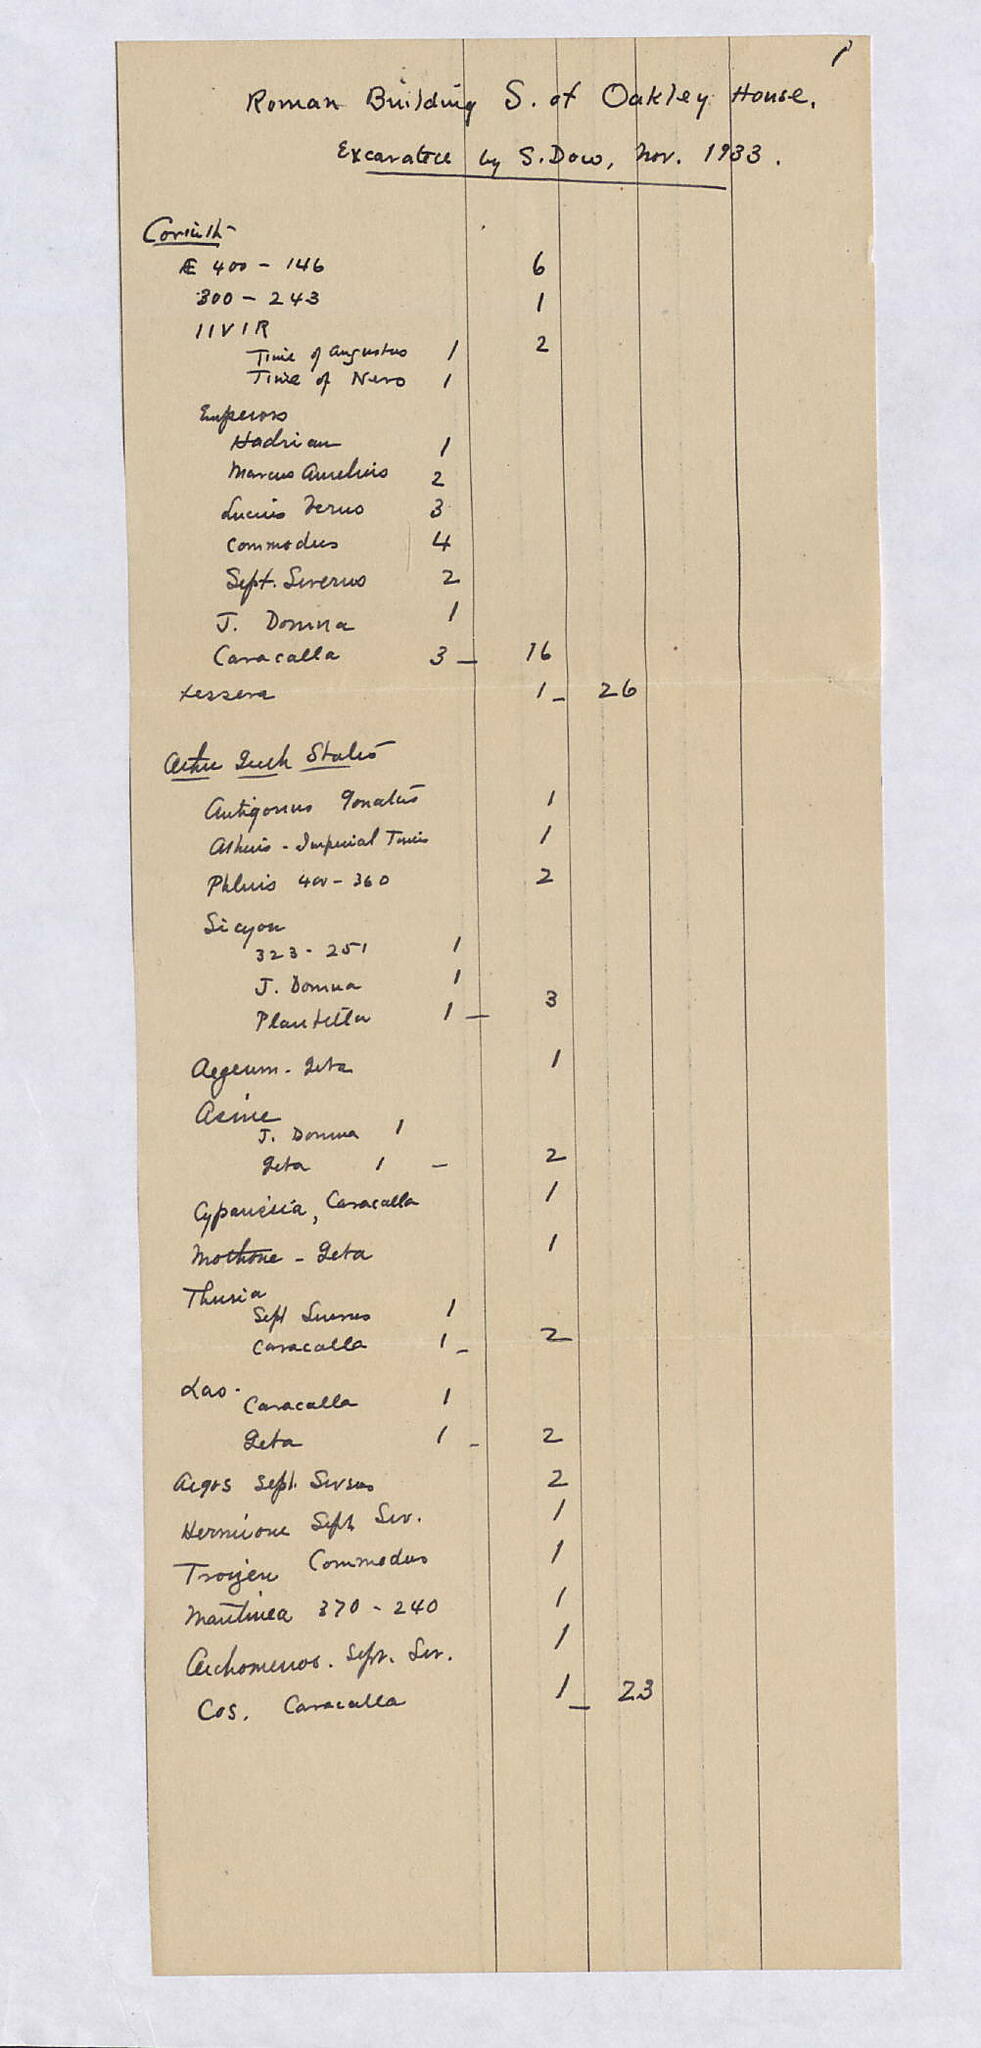 1
Roman Building S. of Oakley House.
Excavated by S. Dow, Nov. 1933.
Corinth
Æ 400 - 146 6
300 - 243 1
IIVIR 2
Time of Augustus 1
Time of Nero 1
Emperors
Hadrian 1
Marcus Aurelius 2
Lucius Verus 3
Commodus 4
Sept. Severus 2
J. Domna 1
Caracalla 3 - 16
tessera 1 - 26
Other Greek States
Antigonus Gonatas 1
Athens - Imperial Times 1
Phlius 400 - 360 2
Sicyon
323 - 251 1
J. Domna 1
Plautilla 1 - 3
Aegeum - Geta 1
Asine
J. Domna 1
Geta 1 - 2
Cyparissia, Caracalla 1
Mothone - Geta 1
Thuria
Sept Severus 1
Caracalla 1 - 2
Las -
Caracalla 1
Geta 1 - 2
Argos Sept. Severus 2
Hermione Sept Sev. 1
Troizen Commodus 1
Mantinea 370 - 240 1
Orchomenos. Sept. Sev. 1
Cos. Caracalla 1 - 23